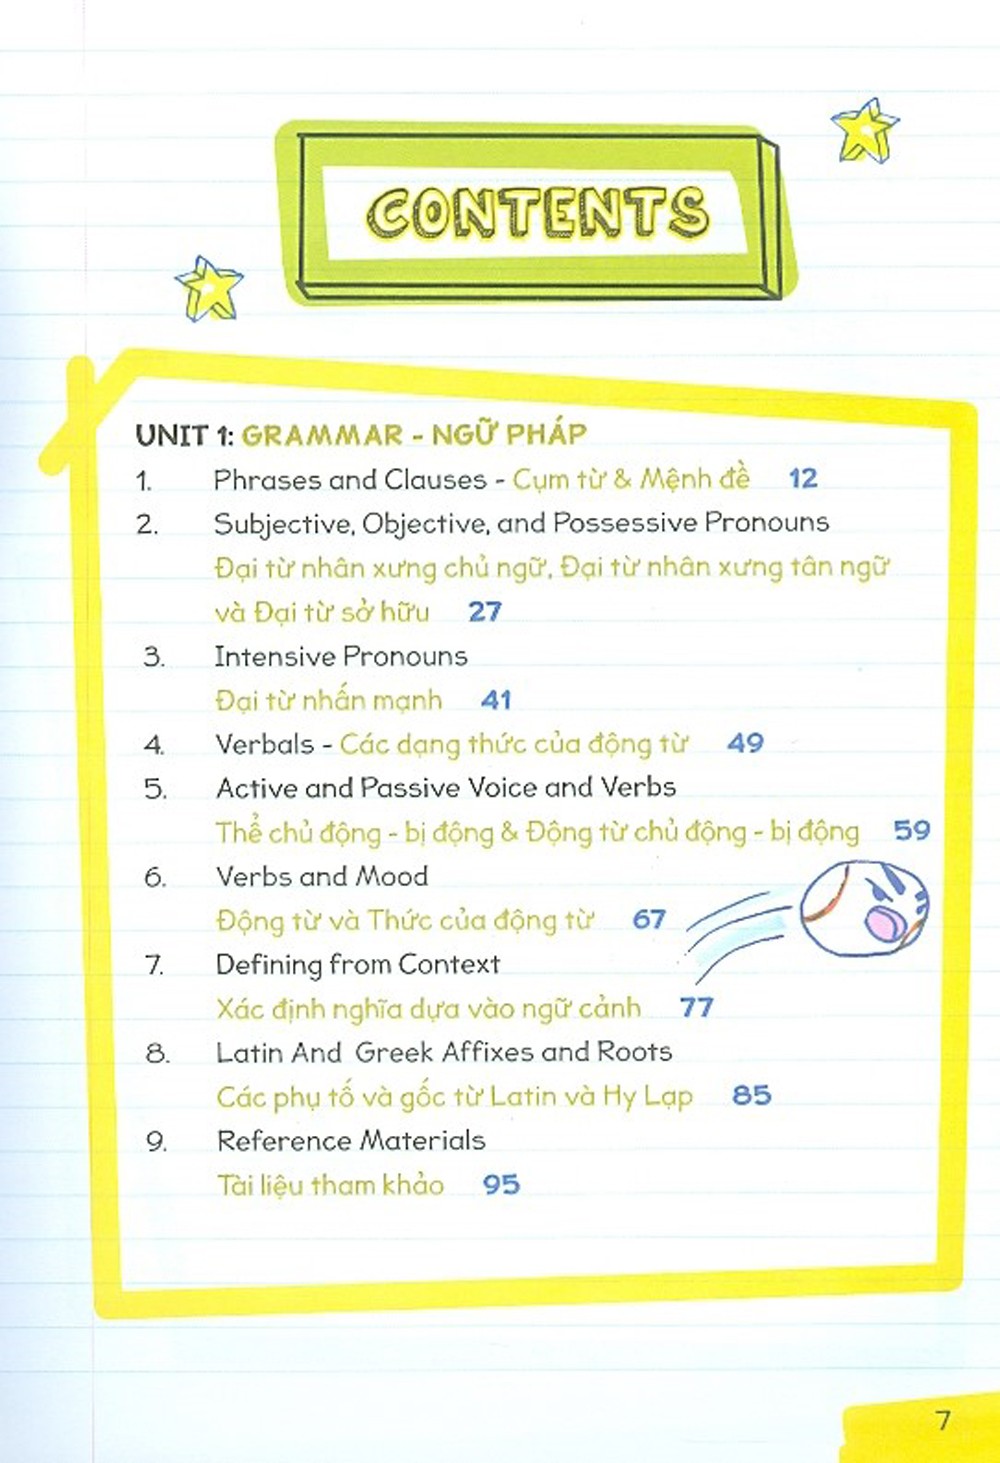 CONTENTS
UNIT 1: GRAMMAR - NGỮ PHÁP
1. Phrases and Clauses - Cụm từ & Mệnh đề 12
2. Subjective, Objective, and Possessive Pronouns
Đại từ nhân xưng chủ ngữ, Đại từ nhân xưng tân ngữ
và Đại từ sở hữu 27
3. Intensive Pronouns
Đại từ nhấn mạnh 41
4. Verbals - Các dạng thức của động từ 49
5. Active and Passive Voice and Verbs
Thể chủ động - bị động & Động từ chủ động - bị động 59
6. Verbs and Mood
Động từ và Thức của động từ 67
7. Defining from Context
Xác định nghĩa dựa vào ngữ cảnh 77
8. Latin And Greek Affixes and Roots
Các phụ tố và gốc từ Latin và Hy Lạp 85
9. Reference Materials
Tài liệu tham khảo 95
7